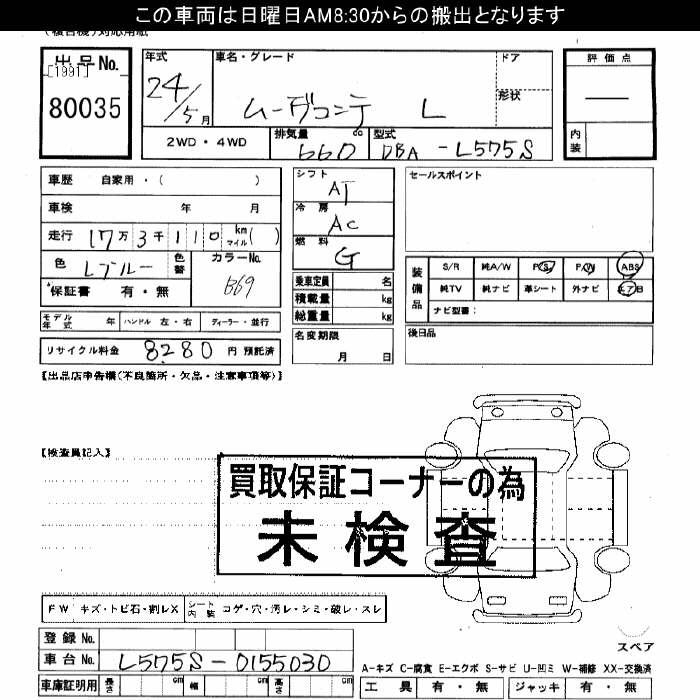 この車両は日曜日AM8:30からの搬出となります
出品No.
[1991]
80035
年式
24/5月
車名・グレード
ムーヴコンテ L
ドア
形状
評価点
内装
2WD・4WD
排気量
660 cc
型式
DBA-L575S
車歴 自家用・( )
車検 年 月
走行 17万3千110 km マイル( )
色 Lブルー
色替
カラーNo.
B69
保証書 有・無
シフト
AT
冷房
AC
燃料
G
乗車定員 名
積載量 kg
総重量 kg
セールスポイント
装備品
S/R 純A/W P/S P/W ABS
純TV 純ナビ 革シート 外ナビ
ナビ型番:
モデル年式 年 ハンドル 左・右 ディーラー・並行
リサイクル料金 8280 円 預託済
名変期限
月 日
後日品
【出品店申告欄(不良箇所・欠品・注意事項等)】
【検査員記入】
買取保証コーナーの為
未検査
FW キズ・トビ石・割レX
シート内装 コゲ・穴・汚レ・シミ・破レ・スレ
スペア
登録No.
車台No. L575S-0155030
A-キズ C-腐食 E-エクボ S-サビ U-凹ミ W-補修 XX-交換済
車庫証明用 長さ cm 幅 cm 高さ cm
工具 有・無 ジャッキ 有・無